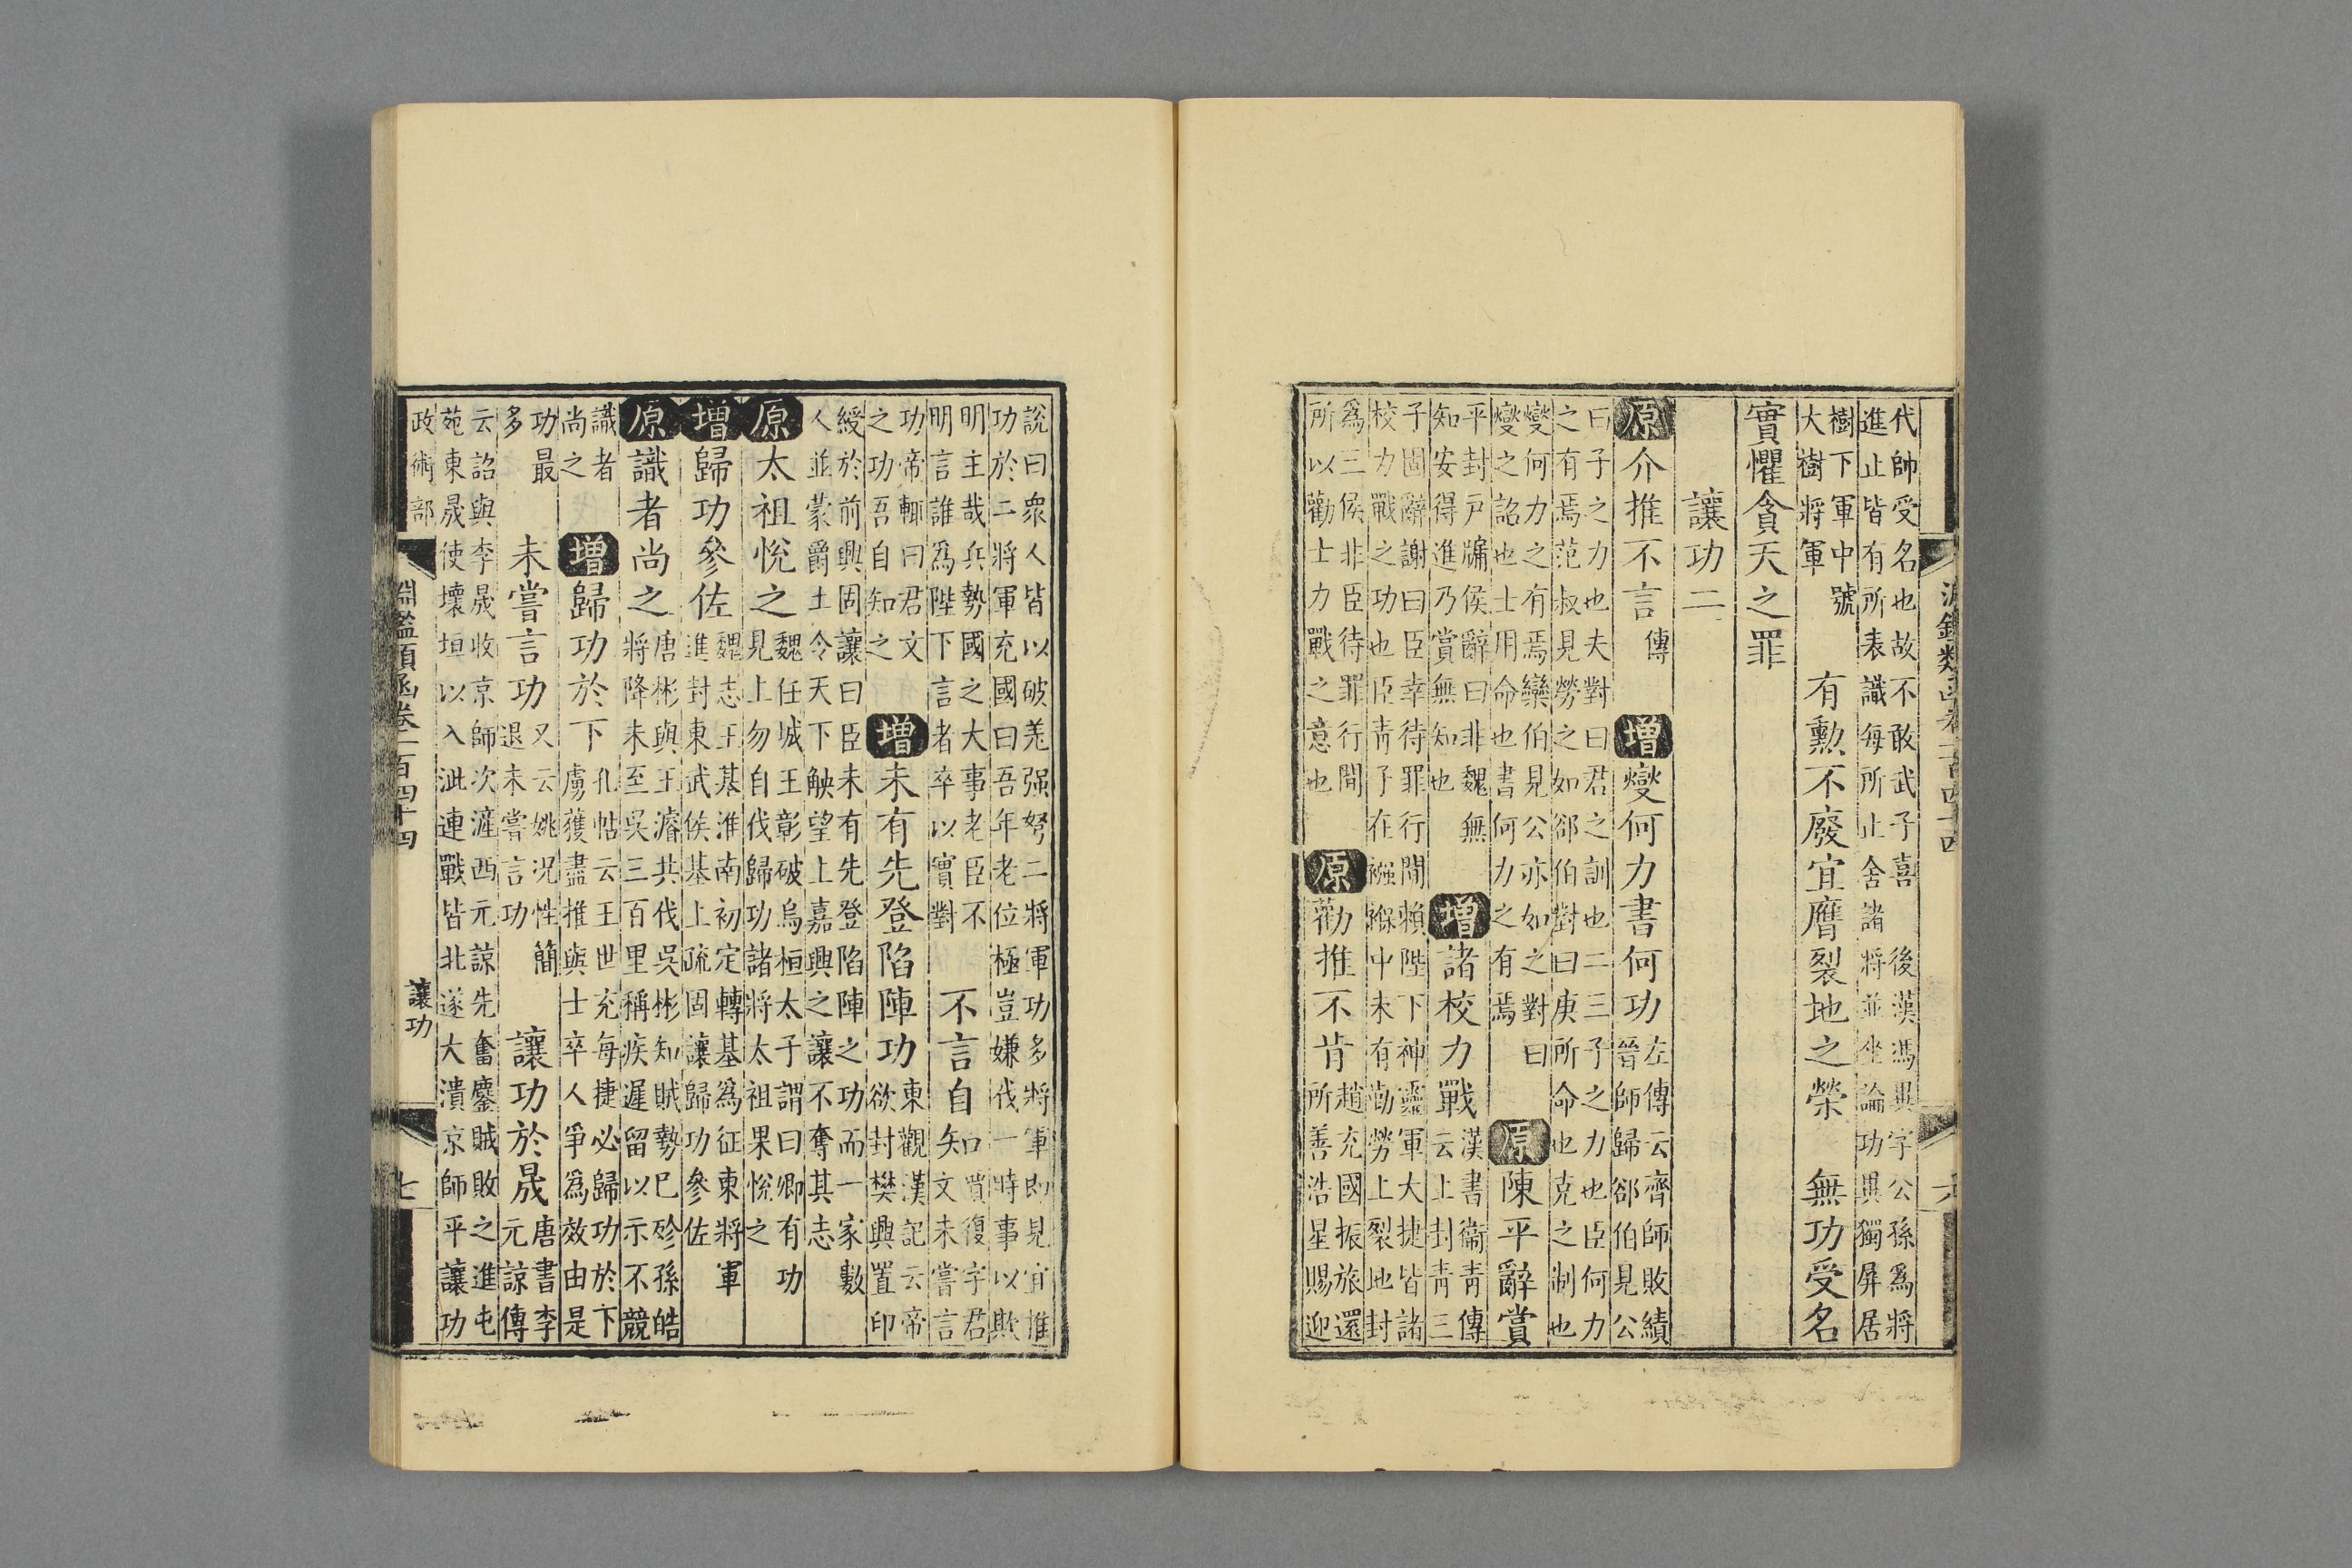 代帥受名也故不敢武子喜 後漢馮異字公孫爲將
進止皆有所表識每所止舍諸將並坐論功異獨屏居
樹下軍中號
大樹將軍
有勳不廢宜膺裂地之榮 無功受名
實懼貪天之罪
讓功二
原介推不言傳 增燮何力書何功
左傳云齊師敗績
晉師歸郤伯見公
曰子之力也夫對曰君之訓也二三子之力也臣何力
之有焉范叔見勞之如郤伯對曰庚所命也克之制也
燮何力之有焉欒伯見公亦如之對曰
燮之詔也士用命也書何力之有焉
原陳平辭賞
平封戸牖侯辭曰非魏無
知安得進乃賞無知也
增諸校力戰
漢書衞青傳
云上封青三
子固辭謝曰臣幸待罪行間賴陛下神靈軍大捷皆諸
校力戰之功也臣青子在襁褓中未有勤勞上裂地封
爲三侯非臣待罪行間
所以勸士力戰之意也
原勸推不肯
趙充國振旅還
所善浩星賜迎
說曰衆人皆以破羌强弩二將軍功多將軍即見宜推
功於二將軍充國曰吾年老位極豈嫌伐一時事以欺
明主哉兵勢國之大事老臣不
明言誰爲陛下言者卒以實對
不言自矢
口賈復字君
文未嘗言
功帝輒曰君文
之功吾自知之
增未有先登陷陣功
東觀漢記云帝
欲封樊興置印
綬於前興固讓曰臣未有先登陷陣之功而一家數
人並蒙爵土令天下觖望上嘉興之讓不奪其志
原太祖悅之
魏任城王彰破烏桓太子謂曰卿有功
見上勿自伐歸功諸將太祖果悅之
增歸功參佐
魏志王基淮南初定轉基爲征東將軍
進封東武侯基上疏固讓歸功參佐
原識者尚之
唐彬與王濬共伐吳彬知賊勢已殄孫皓
將降未至吳三百里稱疾遲留以示不競
識者
尚之
增歸功於下
孔帖云王世充每捷必歸功於下
虜獲盡推與士卒人爭爲效由是
功最
多
未嘗言功
又云姚况性簡
退未嘗言功
讓功於晟
唐書李
元諒傳
云詔與李晟收京師次滻西元諒先奮鏖賊敗之進屯
苑東晟使壞垣以入泚連戰皆北遂大潰京師平讓功
政術部
淵鑑類函卷二百四十四
讓功
七